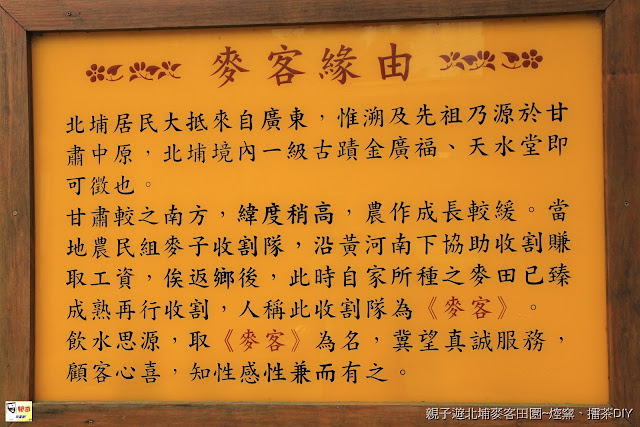 麥客緣由
北埔居民大抵來自廣東，惟溯及先祖乃源於甘
肅中原，北埔境內一級古蹟金廣福、天水堂即
可徵也。
甘肅較之南方，緯度稍高，農作成長較緩。當
地農民組麥子收割隊，沿黃河南下協助收割賺
取工資，俟返鄉後，此時自家所種之麥田已臻
成熟再行收割，人稱此收割隊為《麥客》。
飲水思源，取《麥客》為名，冀望真誠服務，
顧客心喜，知性感性兼而有之。
親子遊北埔麥客田園~焢窯、擂茶DIY